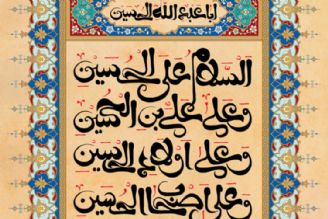 ابا عبد الله الحسین
السلام علی الحسین
وعلی علی بن الحسین
وعلی اولاد الحسین
وعلی اصحاب الحسین